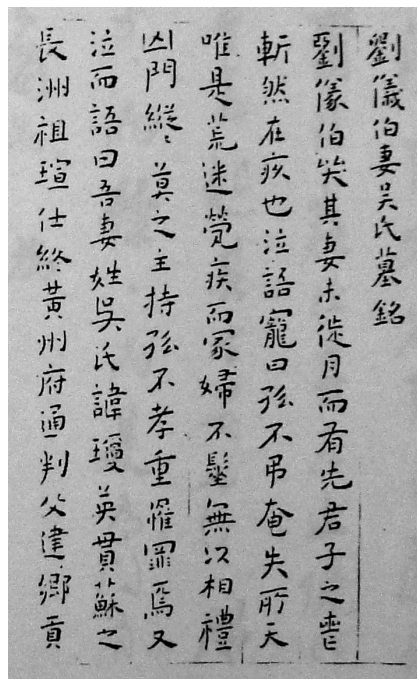 劉儀伯妻吳氏墓銘
劉儀伯哭其妻未徙月而有先君子之喪
斬然在疚也泣語寵曰孤不弔奄失所天
唯是荒迷煢疾而冢婦不髽無以相禮
凶門縱〻莫之主持孤不孝重罹罪焉又
泣而語曰吾妻姓吳氏諱瓊英貫蘇之
長洲祖瑄仕終黃州府通判父建鄉貢